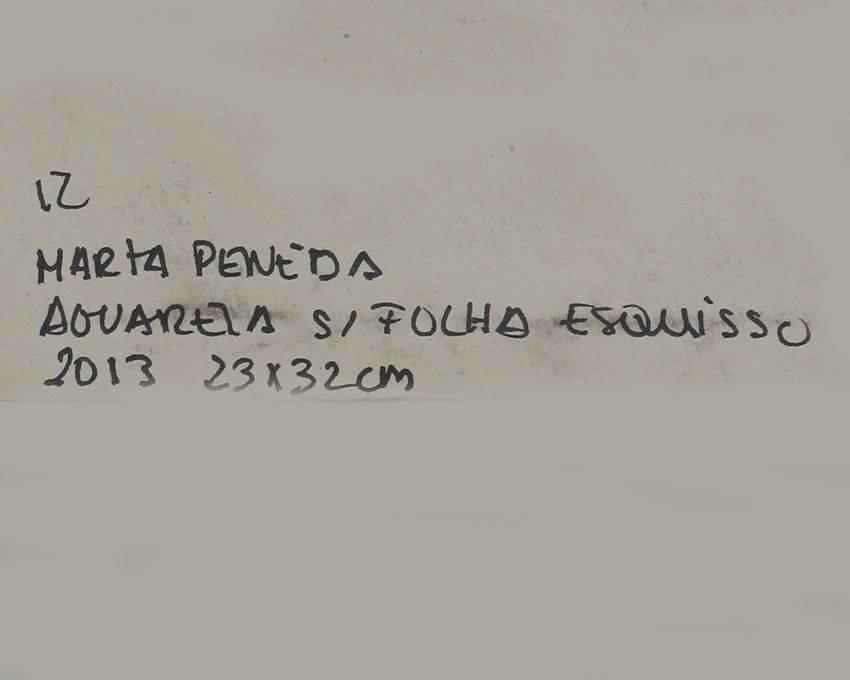 12
MARTA PENEDA
AGUARELA S/ FOLHA ESQUISSO
2013 23x32cm